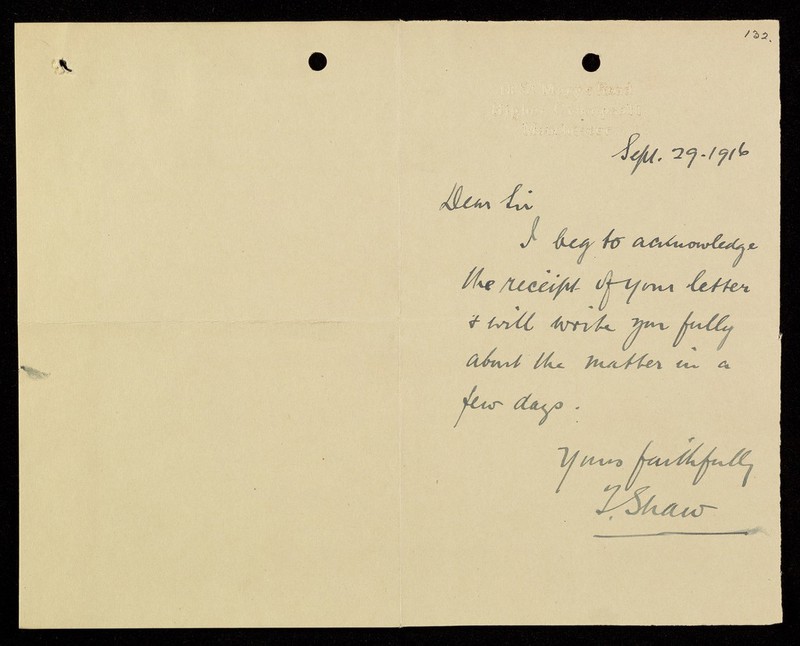 132.
Sept. 29-1916
Dear Sir
I beg to acknowledge
the receipt of your letter
& will write you fully
about the matter in a
few days.
Yours faithfully
T. Shaw